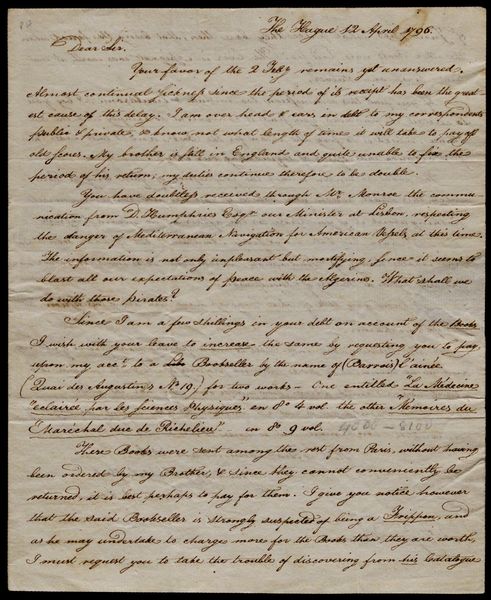 The Hague 12 April 1796.
Dear Sir.
Your favor of the 2 Feby remains yet unanswered.
Almost continual sickness since the period of its receipt has been the great
est cause of this delay. I am over head & ears in debt to my correspondents
public & private, & know not what length of time it will take to pay off
old scores. My brother is still in England and quite unable to fix the
period of his return; my duties continue therefore to be double.
You have doubtless received through Mr. Monroe the commu-
nication from D. Humphries Esqr. our Minister at Lisbon, respecting
the danger of Mediterranean Navigation for American Vessels at this time.
The information is not only unpleasant but mortifying, since it seems to
blast all our expectations of peace with the Algerine. What shall we
do with those pirates?
Since I am a few shillings in your debt on account of the Books
I wish with your leave to increase the same by requesting you to pay
upon my acct. to a Bookseller by the name of (Barrois) l'ainée
(Quai des Augustins No. 19,) for two works - One entitled "La Médecine
"eclairée par les sciences Physiques" in 8o. 4 vol. the other "Memoires du
"Maréchal duc de Richelieu" - in 8o. 9 vol.
These Books were sent among the rest from Paris, without having
been ordered by my Brother, & since they cannot conveniently be
returned, it is best perhaps to pay for them. I give you notice however
that the said Bookseller is strongly suspected of being a Frippon, and
as he may undertake to charge more for the Books than they are worth,
I must request you to take the trouble of discovering from his Catalogue